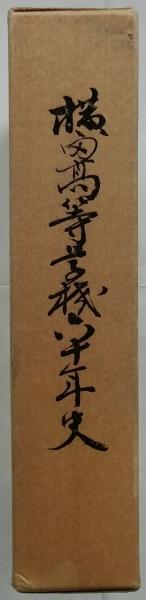 横田高等学校六十年史